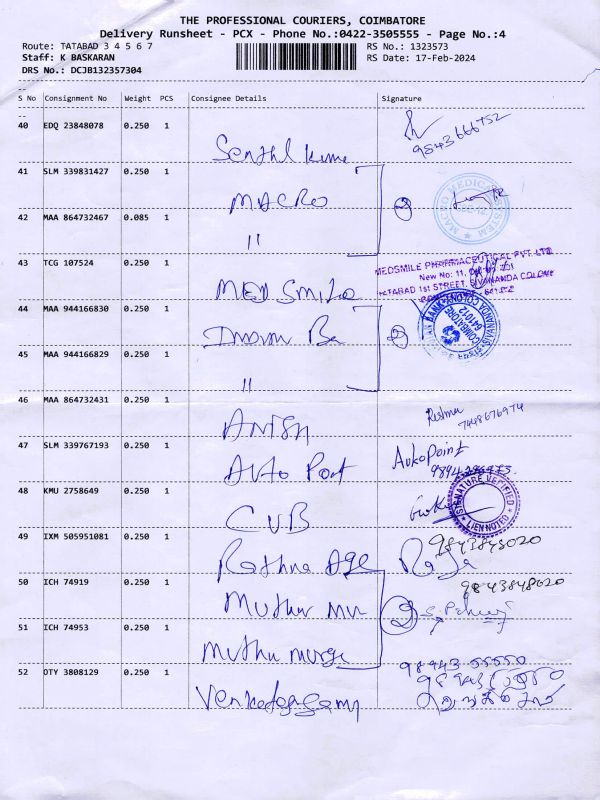 THE PROFESSIONAL COURIERS, COIMBATORE
Delivery Runsheet - PCX - Phone No.:0422-3505555 - Page No.:4
Route: TATABAD 3 4 5 6 7 RS No.: 1323573
Staff: K BASKARAN RS Date: 17-Feb-2024
DRS No.: DCJB132357304
S No Consignment No Weight PCS Consignee Details Signature
40 EDQ 23848078 0.250 1
9843666752
Senthil Kume
41 SLM 339831427 0.250 1
MACRO
2
MACRO MEDICAL SYSTEM
42 MAA 864732467 0.085 1
"
43 TCG 107524 0.250 1
MEDSMILE PHARMACEUTICAL PVT. LTD
New No: 11,
TATABAD 1st STREET, SIVANANDA COLONY
MED Smile
44 MAA 944166830 0.250 1
BANK SIVANANDA COLONY
COIMBATORE
641012
2
45 MAA 944166829 0.250 1
"
46 MAA 864732431 0.250 1
Reshma
7448676974
ANISH
47 SLM 339767193 0.250 1
AutoPoint
Auto Port
48 KMU 2758649 0.250 1
SIGNATURE VERIFIED
LIEN NOTED
CUB
49 IXM 505951081 0.250 1
9843848020
Rathna Age
Raja
50 ICH 74919 0.250 1
9843848020
Muthu Mu
2
51 ICH 74953 0.250 1
Muthu muruge
52 OTY 3808129 0.250 1
98443 55550
Venkatasamy